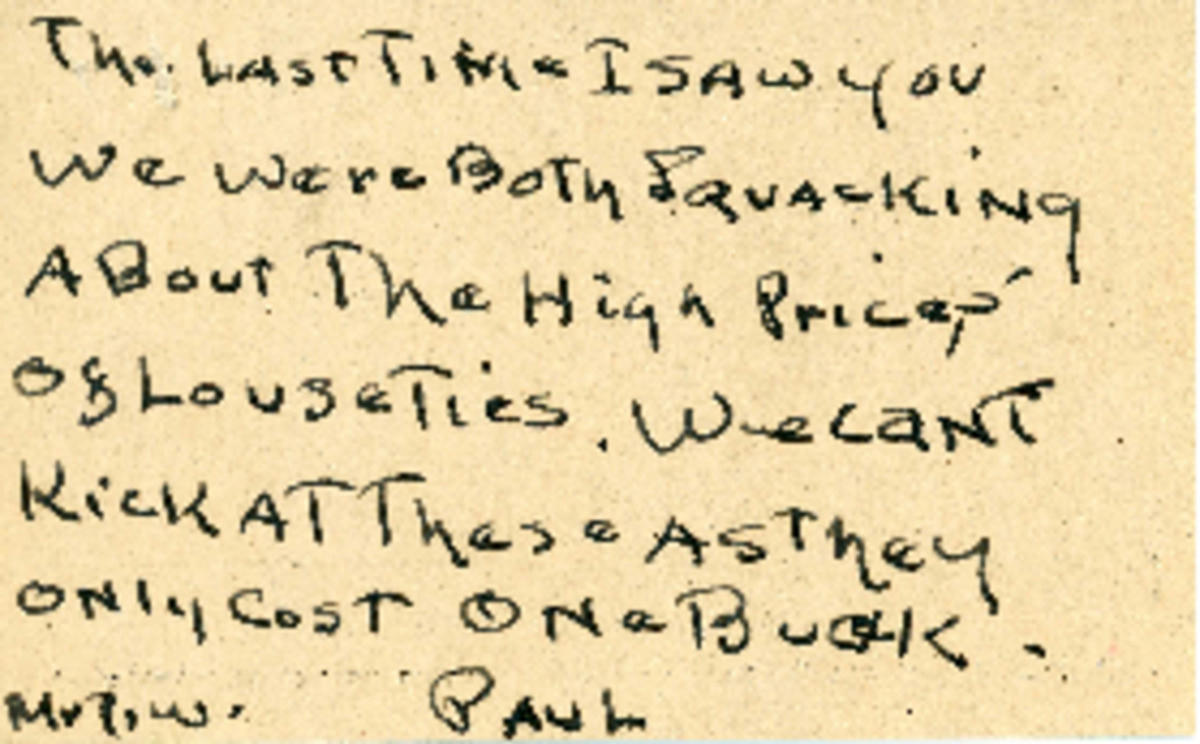 The Last Time I saw you
We were Both Squacking
About The High Prices
Of Louse Ties. We cant
Kick AT These As They
only Cost One Buck.
Mr. P.W. Paul